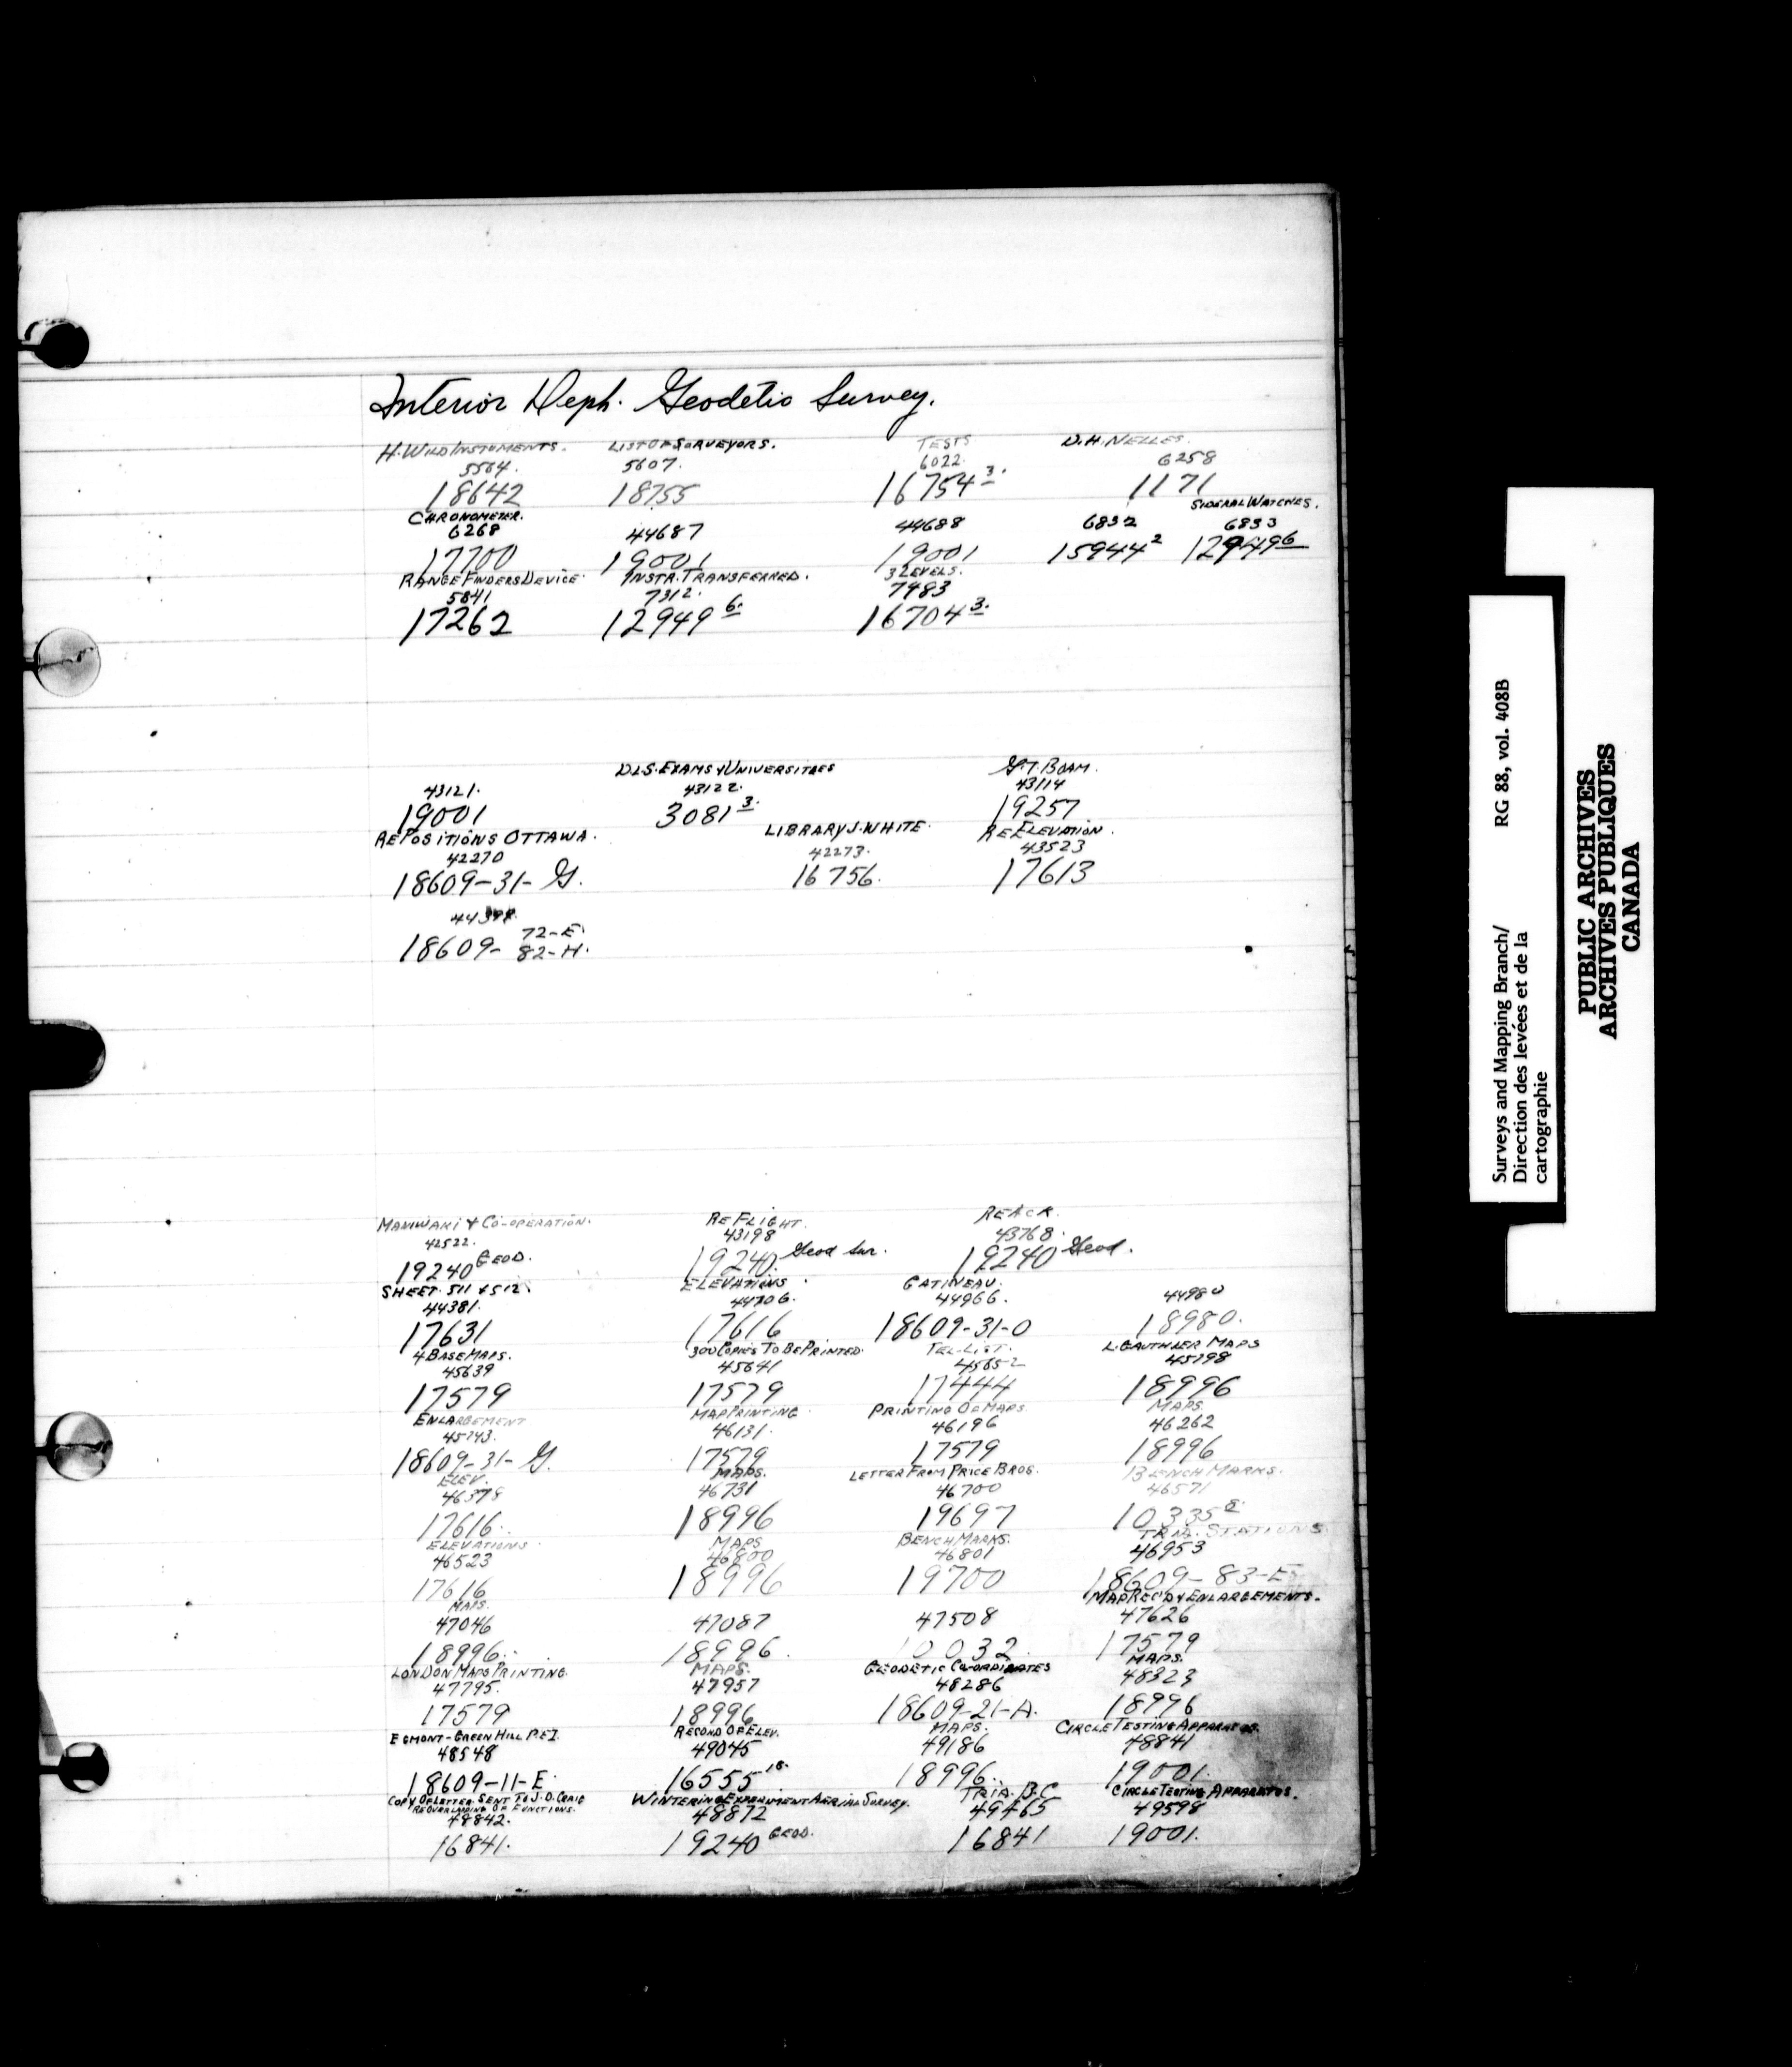 Interior Deph. Geodetic Survey.
H. WILD INSTUMENTS. LIST OF SURVEYORS. TESTS D. H. NELLES.
5564. 5607. 6022. 6258
18642 18755 16754 3. 1171
CHRONOMETER. SIDERAL WATCHES.
6268 44687 44688 6832 6833
17700 19001 19001 15944 2 12949 6
RANGE FINDERS DEVICE. INSTR. TRANSFERRED. 3 LEVELS.
5841 7312. 7483
17262 12949 6. 16704 3.
D.L.S. EXAMS & UNIVERSITIES G. T. BOAM.
43121. 43122. 43114
19001 3081 3. 19257
RE POSITIONS OTTAWA. LIBRARY J. WHITE. RE ELEVATION.
42270 42273. 43523
18609-31-G. 16756. 17613
72-E.
18609- 82-H.
MANIWAKI & CO-OPERATION. RE FLIGHT. RE ACR.
42522. 43198 43768.
19240 GEOD. 19240. Geod Sur. 19240 Geod.
SHEET. 511 & 512. ELEVATIONS. GATINEAU.
44381. 44706. 44966. 44980
17631 17616 18609-31-O 18980.
4 BASE MAPS. 300 COPIES TO BE PRINTED. TEL-LIST. L. GAUTHIER MAPS
45639 45641 45652 45798
17579 17579 17444 18996
ENLARGEMENT MAP PRINTING. PRINTING OF MAPS. MAPS
45743. 46131. 46196 46262
18609-31-G. 17579 17579 18996
ELEV. MAPS. LETTER FROM PRICE BROS. BENCH MARKS.
46378 46731 46700 46571
17616. 18996 19697 10335 E.
ELEVATIONS. MAPS BENCH MARKS. TRIA. STATIONS
46523 46800 46801 46953
17616 18996 19700 18609-83-E
MAPS. MAP REC'D & ENLARGEMENTS.
47046 47087 47508 47626
18996. 18996. 10032. 17579
LONDON MAPS PRINTING. MAPS. GEODETIC CO-ORDINATES MAPS.
47795. 47957 48286 48323
17579 18996 18609-21-A. 18996
EGMONT-GREEN HILL P.E.I. RECOND OF ELEV. MAPS. CIRCLE TESTING APPARATUS.
48548 49045 49186 48841
18609-11-E. 16555 18. 18996. 19001.
COPY OF LETTER SENT TO J. D. CRAIG WINTERING EXPERIMENT AERIAL SURVEY. TRIA. B.C CIRCLE TESTING APPARATUS.
RE OVERLAPPING OF FUNCTIONS.
48842. 48872 49465 49598
16841. 19240 GEOD. 16841 19001.
Surveys and Mapping Branch/ RG 88, vol. 408B
Direction des levées et de la
cartographie
PUBLIC ARCHIVES
ARCHIVES PUBLIQUES
CANADA